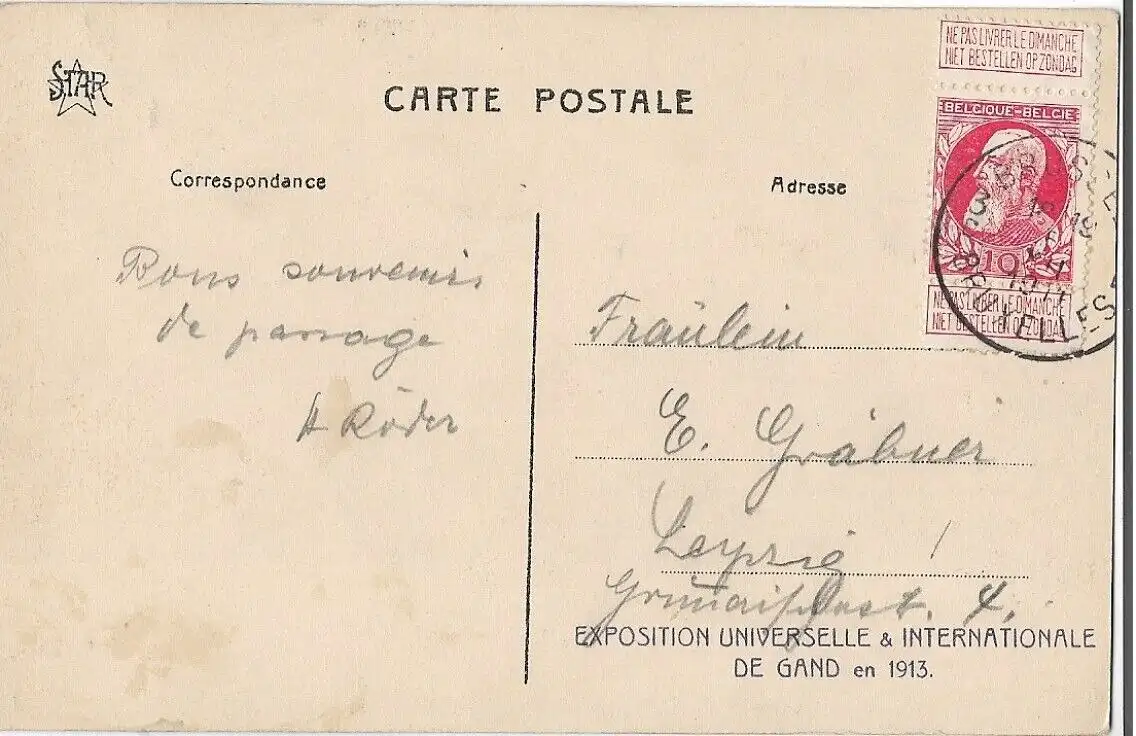 STAR
CARTE POSTALE
NE PAS LIVRER LE DIMANCHE
NIET BESTELLEN OP ZONDAG
BELGIQUE-BELGIË
10
NE PAS LIVRER LE DIMANCHE
NIET BESTELLEN OP ZONDAG
Correspondance
Bons souvenirs
de passage
A Röder
Adresse
Fräulein
E. Gräbner
Leipzig !
4.
EXPOSITION UNIVERSELLE & INTERNATIONALE
DE GAND en 1913.